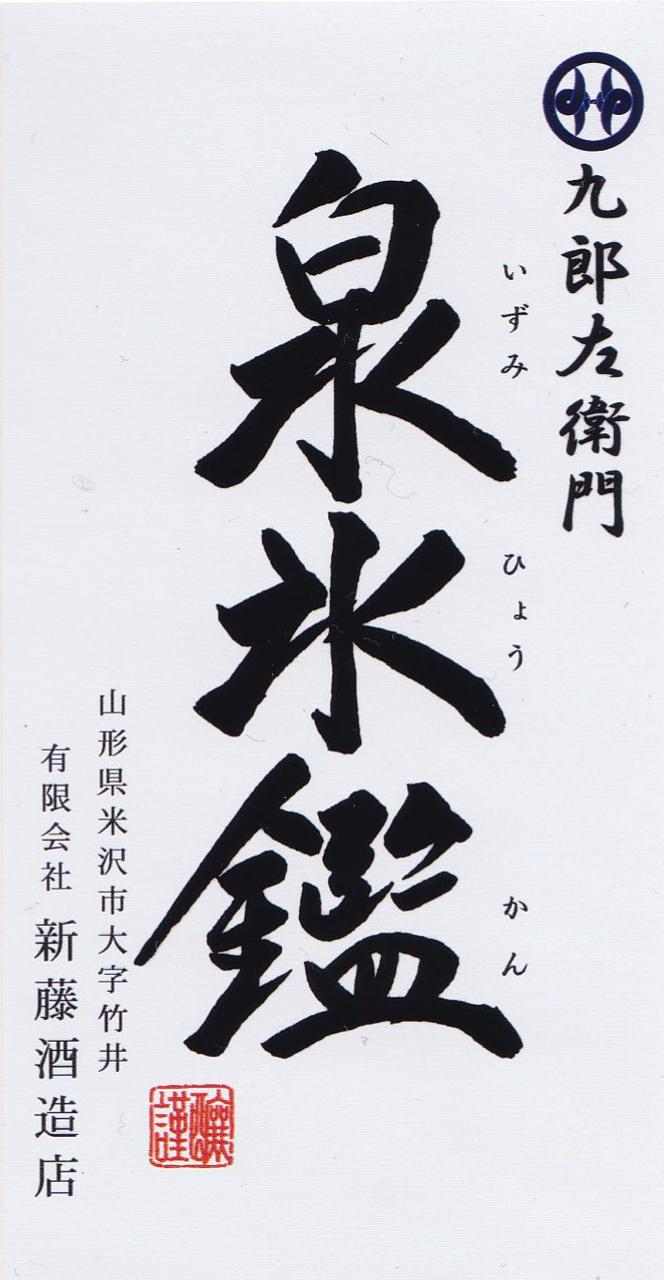 九郎左衛門
いずみ ひょう かん
泉氷鑑
山形県米沢市大字竹井
有限会社 新藤酒造店
謹醸